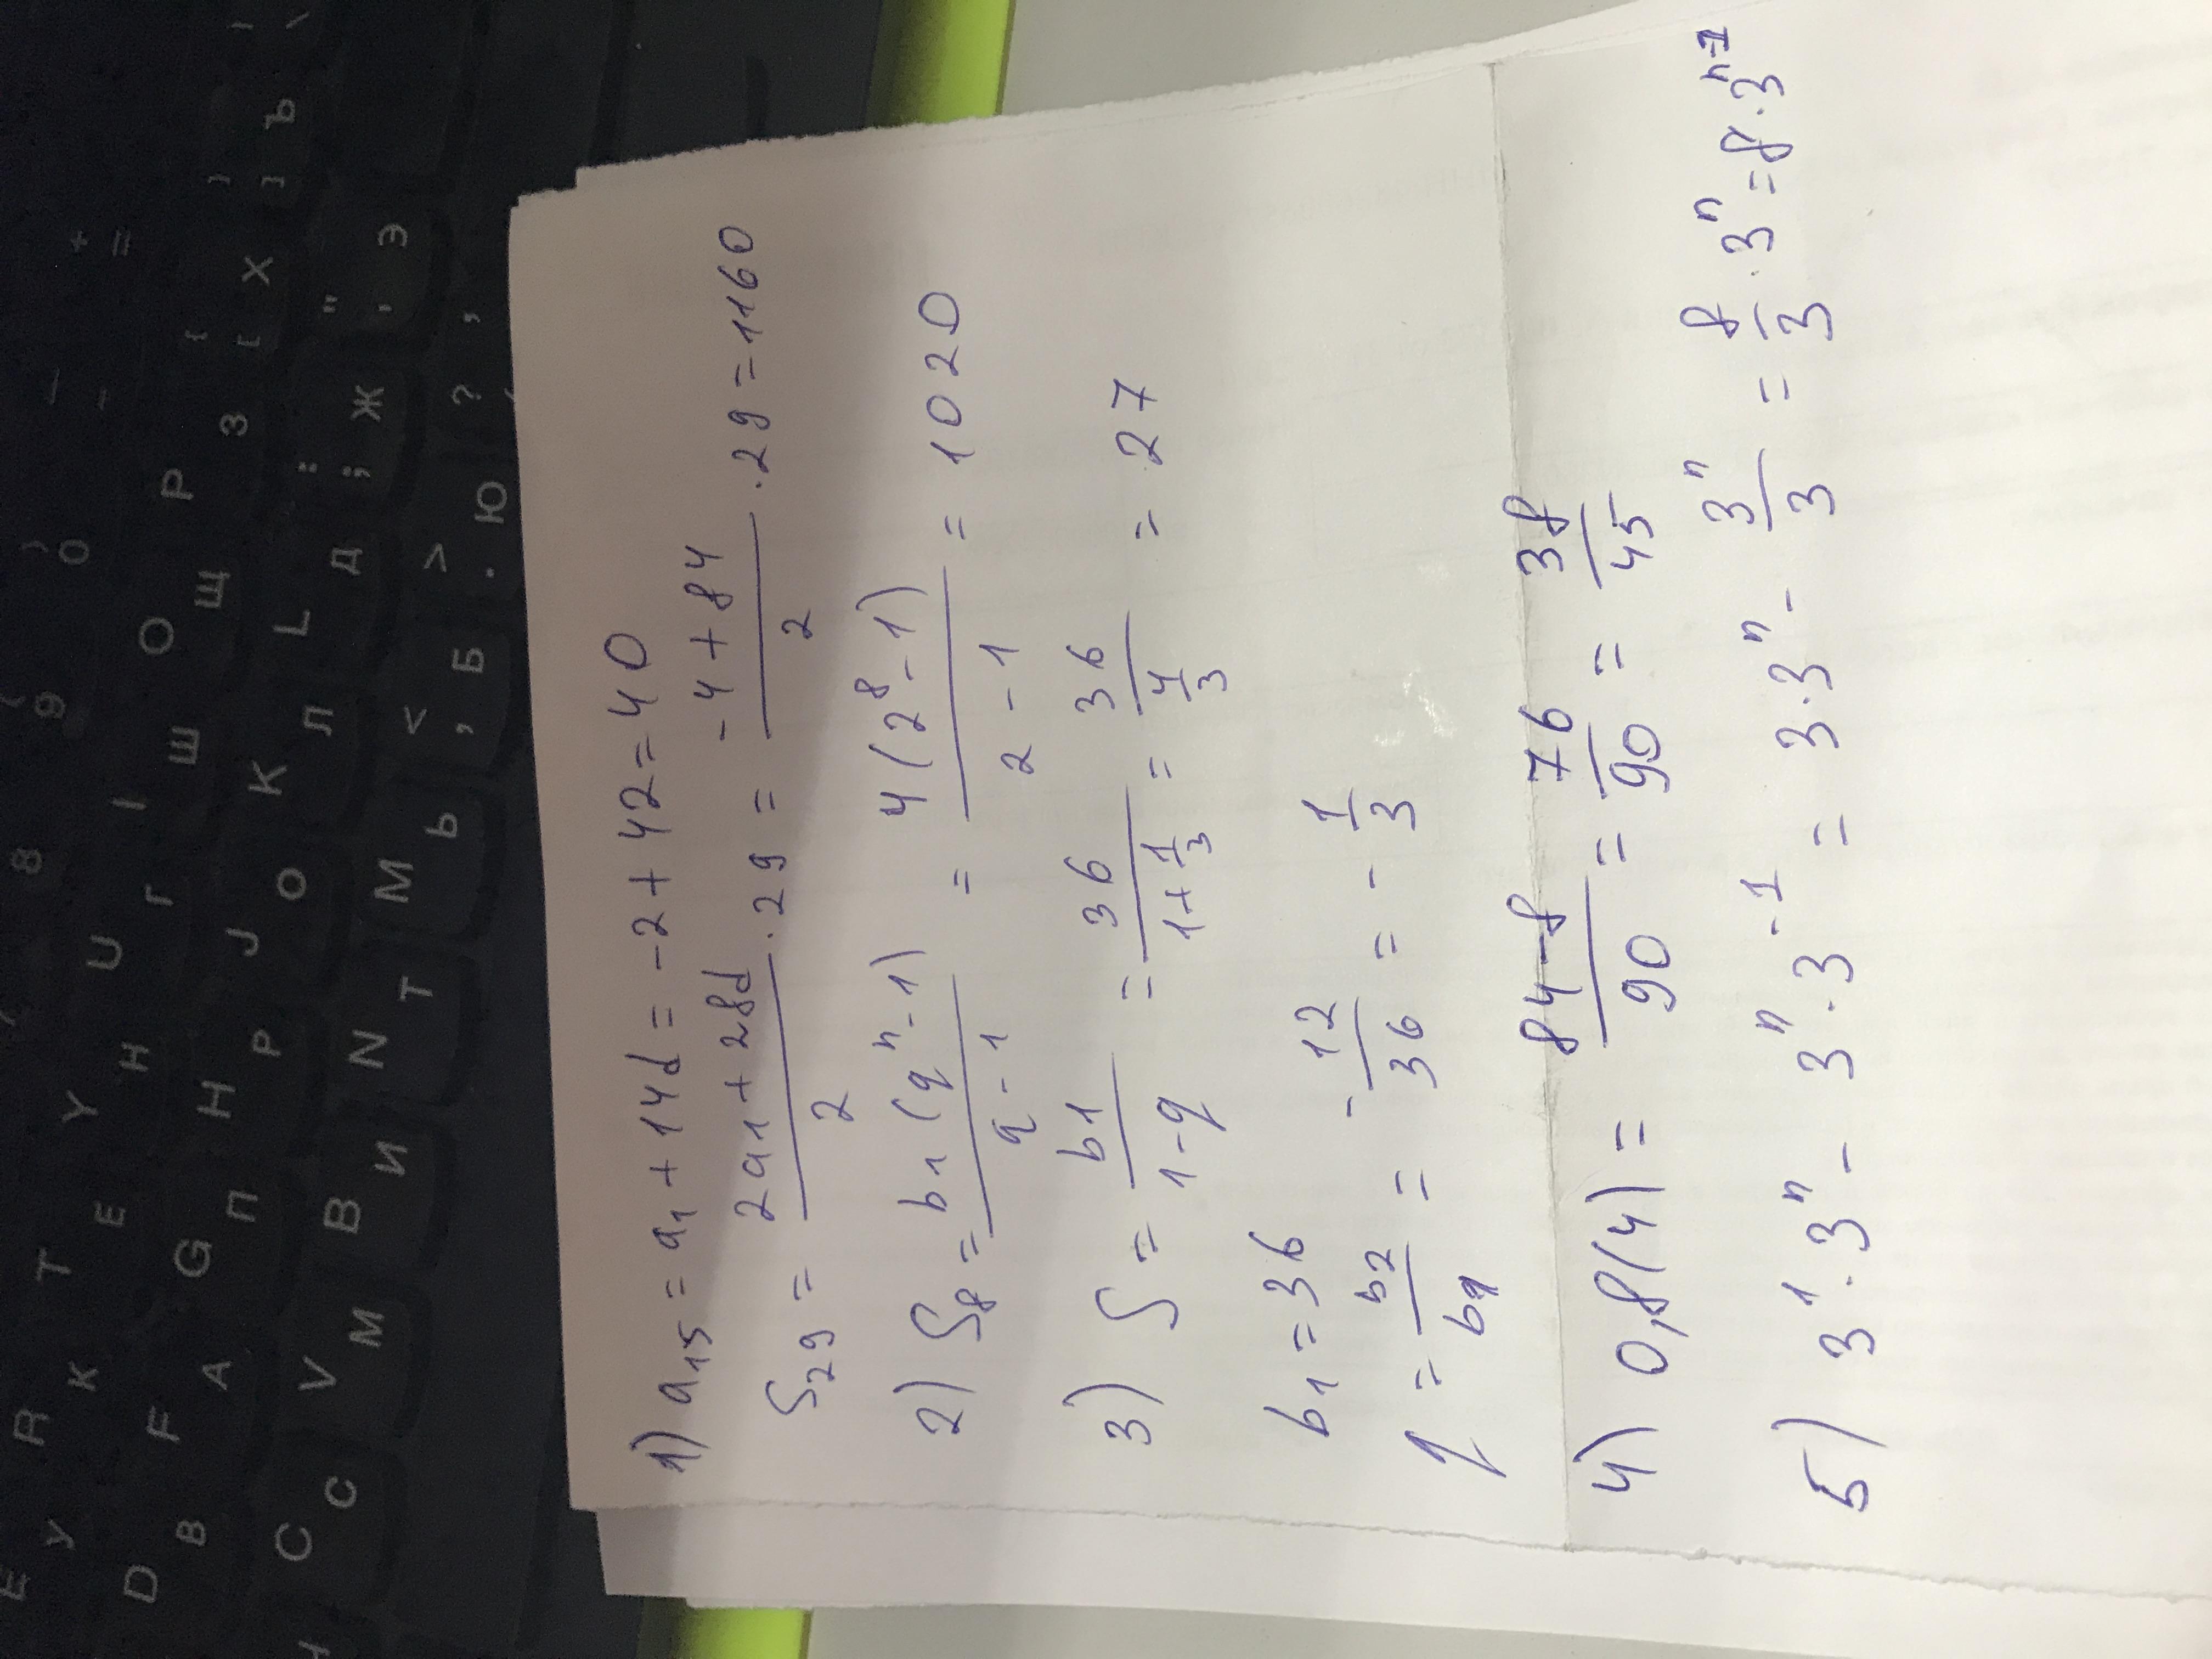 1) a₁₅ = a₁ + 14d = -2 + 42 = 40
S₂₉ = (2a₁ + 28d)/2 · 29 = (-4 + 84)/2 · 29 = 1160
2) S₈ = b₁(qⁿ - 1)/(q - 1) = 4(2⁸ - 1)/(2 - 1) = 1020
3) S = b₁/(1 - q) = 36/(1 + 1/3) = 36/(4/3) = 27
b₁ = 36
q = b₂/b₁ = -12/36 = -1/3
4) 0,8(4) = (84 - 8)/90 = 76/90 = 38/45
5) 3¹ · 3ⁿ - 3ⁿ · 3⁻¹ = 3 · 3ⁿ - 3ⁿ/3 = 8/3 · 3ⁿ = 8 · 3ⁿ⁻¹
8 9 ( 0 ) - _ = +
E У R К T Е Y Н U Г I Ш O Щ P З [ { Х ] } Ъ \
D В F А G П H Р J О K Л L Д ; : Ж ' " Э
C С V М B И N Т M Ь , < Б . > Ю ? ,